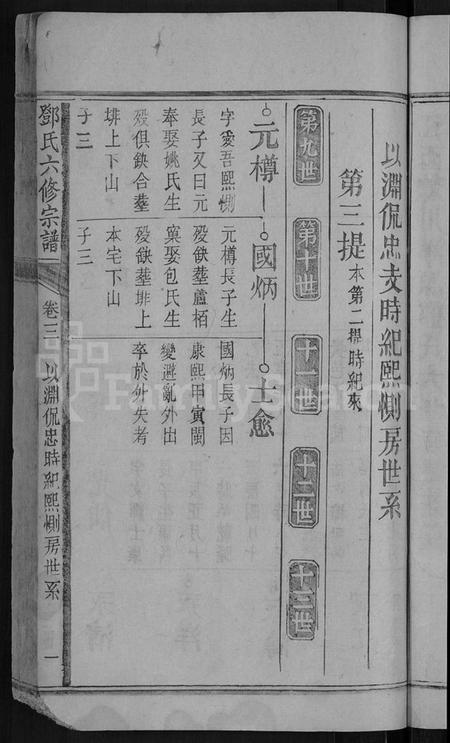 以淵侃忠支時紀熙惻房世系
第三提 本第二提時紀來
第九世
第十世
十一世
十二世
十三世
元樽
國炳
士愈
字愛吾熙惻
長子又曰元
奉娶姚氏生
歿俱缺合塟
埱上下山
子三
元樽長子生
歿缺塟蘆栢
窠娶包氏生
歿缺塟埱上
本宅下山
子三
國炳長子因
康熙甲寅閩
變避亂外出
卒於外失考
鄧氏六修宗譜
卷三
以淵侃忠時紀熙惻房世系
一
FamilySearch